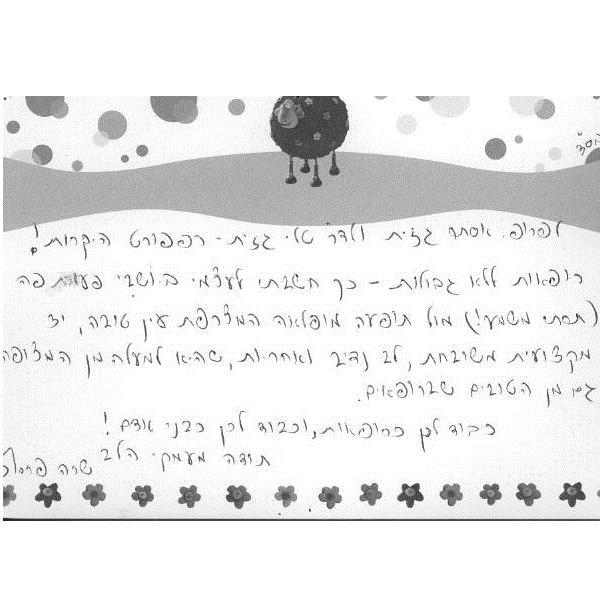 בס"ד
לפרופ. אסתר גזית ולדר' טלי גזית - רפפורט היקרות!
רופאות ללא גבולות - כך חשבתי לעצמי ביושבי פעורת פה
(תרתי משמע!) מול תופעה מופלאה המצרפת עין טובה, יד
מקצועית משובחת, לב נדיב ואחריות, שהיא למעלה מן המצופה
גם מן הטובים שברופאים.
כבוד לכן כרופאות, וכבוד לכן כבני אדם!
תודה מעמקי הלב
שרה